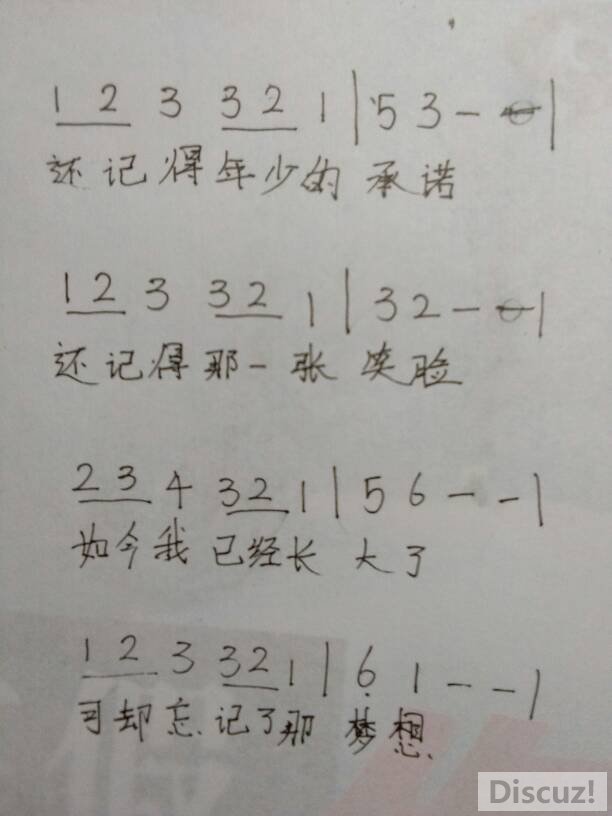 1 2 3 3 2 1 | 5 3 - - |
还记得年少的承诺
1 2 3 3 2 1 | 3 2 - - |
还记得那一张笑脸
2 3 4 3 2 1 | 5 6 - - |
如今我已经长大了
1 2 3 3 2 1 | 6̣ 1 - - |
可却忘记了那梦想
Discuz!